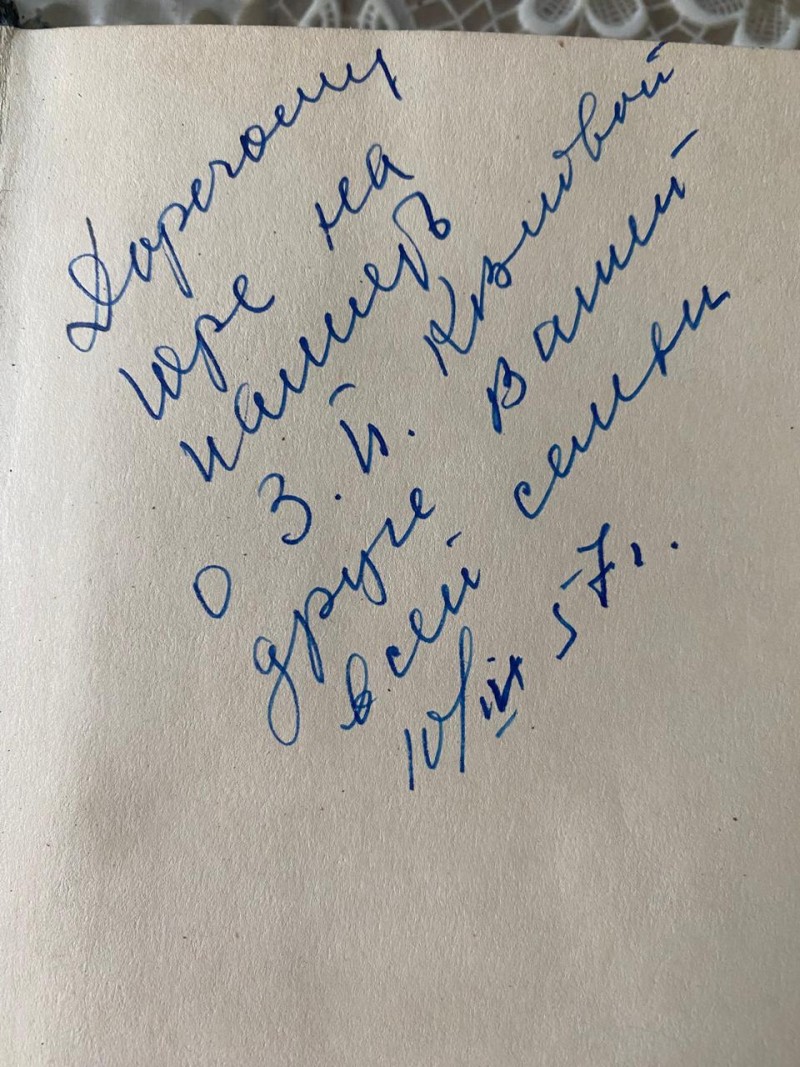 Дорогому
Юре на
память
о З. П.
друге Вашей
всей семьи
10/IV 57 г.